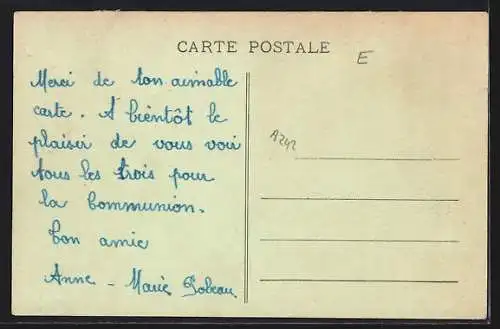 CARTE POSTALE
E
Merci de ton aimable
carte. A bientôt le
plaisir de vous voir
tous les trois pour
la Communion.
Ton amie
Anne - Marie
A242